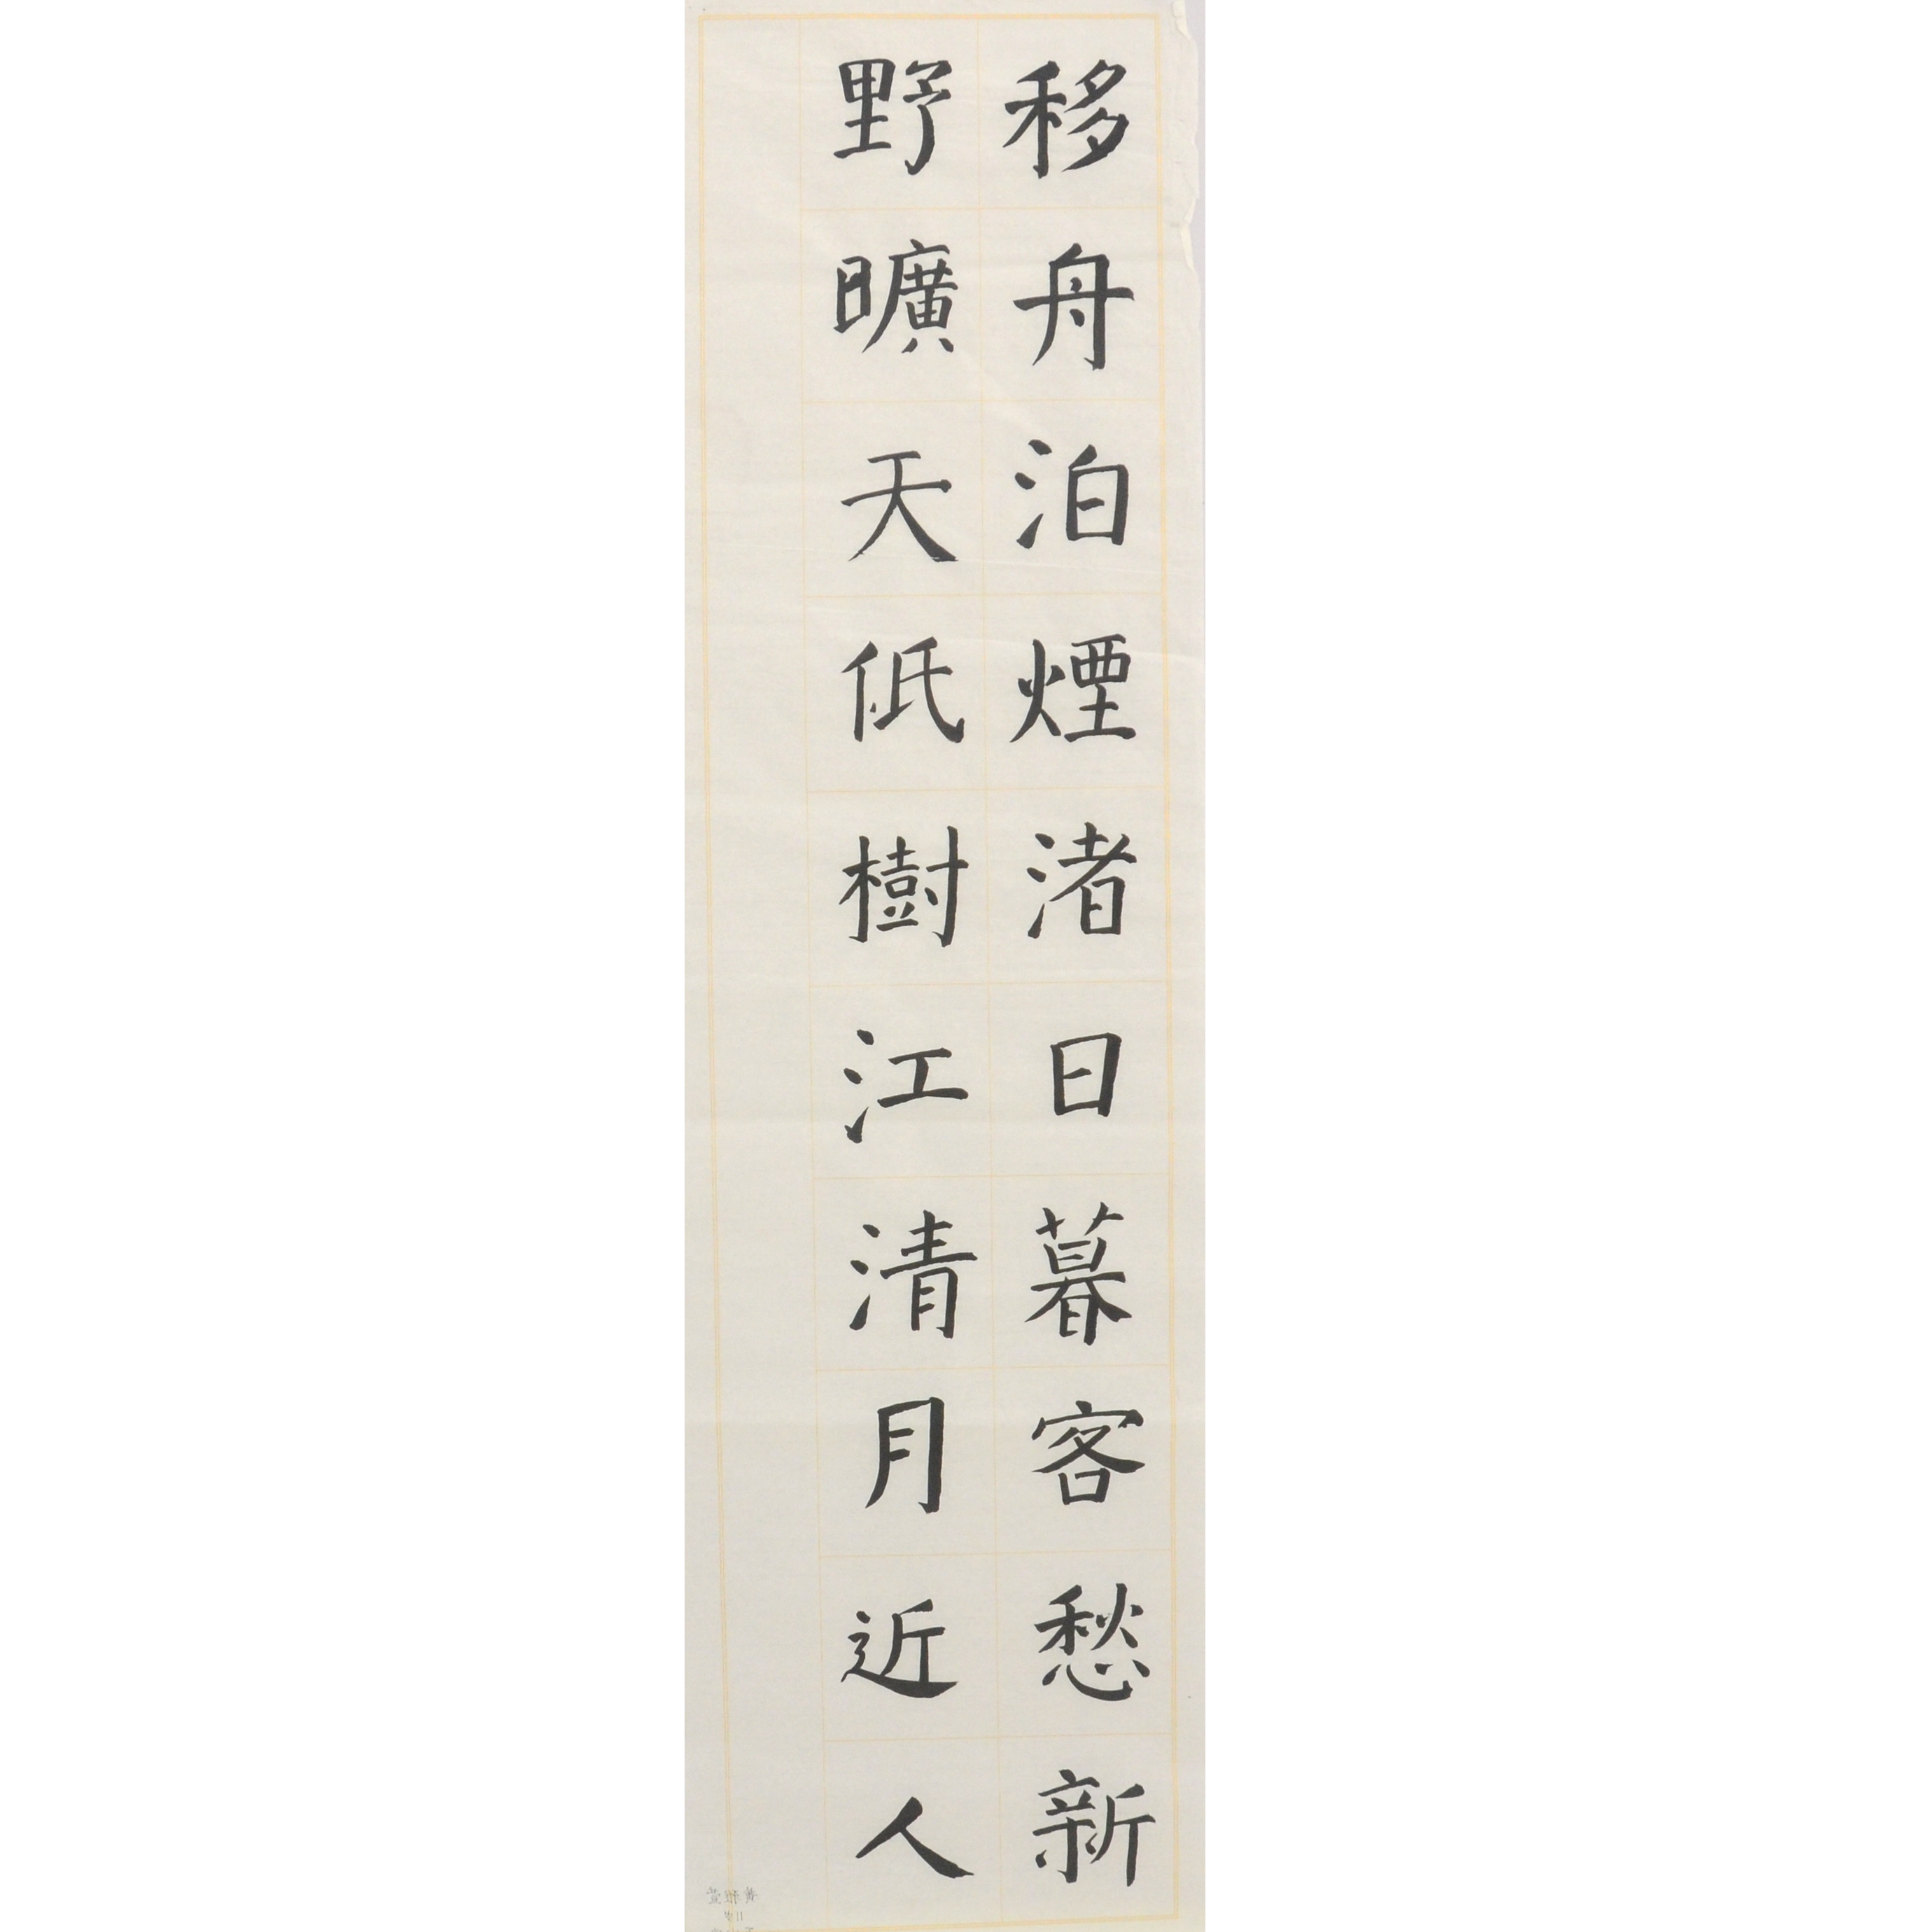 移舟泊煙渚日暮客愁新
野曠天低樹江清月近人